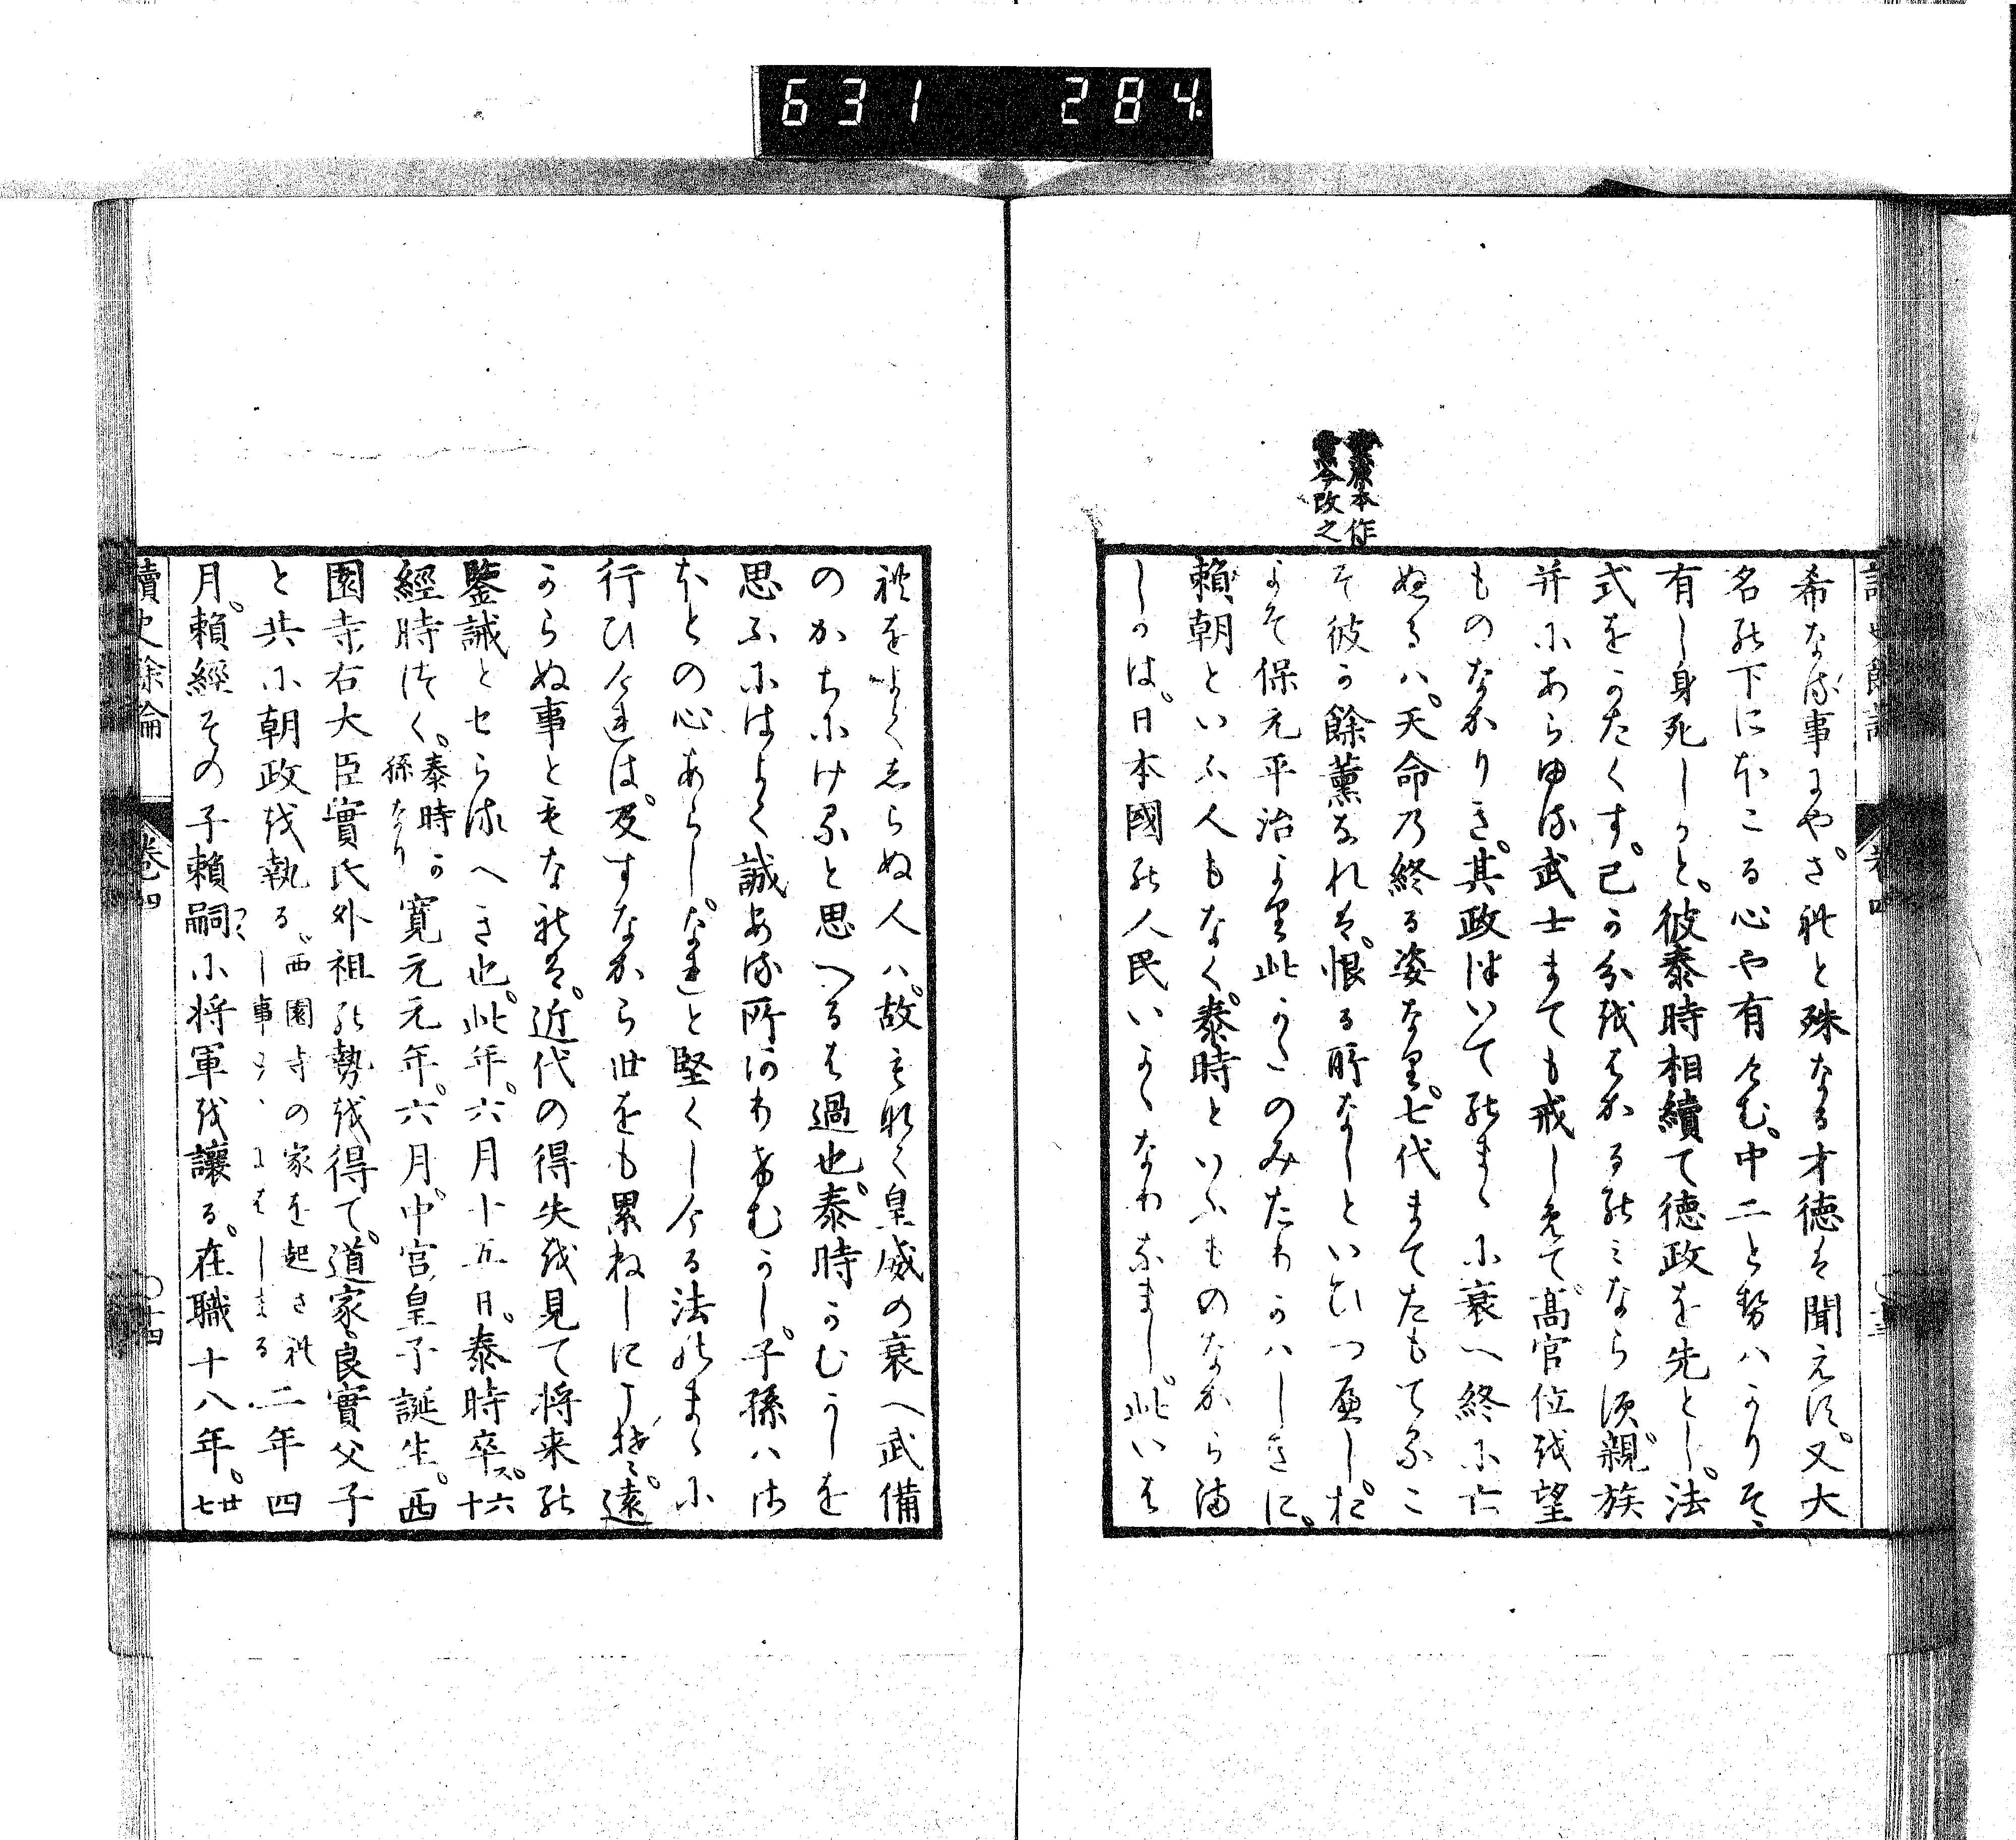 631 284
薫原本作
熏今改之
讀史餘論 卷四
希なる事にや。されと殊なる才徳は聞えす。又大
名の下にほこる心や有けむ。中二とせはかりそ、
有し身死しかと。彼泰時相續て徳政を先とし。法
式をかたくす。己か分をはかるのみならす親族
并にあらゆる武士まても戒しめて。高官位を望
ものなかりき。其政次いてのまゝに衰へ終に亡
ぬるハ。天命の終る姿なり。七代まてたもてるこ
そ彼か餘薫なれは。恨る所なしといひつへし。お
よそ保元平治より此かたのみたりかハしきに。
頼朝といふ人もなく。泰時といふものなからま
しかは。日本國の人民いかゝなりなまし。此いは
れをよくしらぬ人ハ。故もなく皇威の衰へ武備
のかちにけると思へるは過也。泰時かむかしを
思ふにはよく誠ある所ありけむかし。子孫ハさ
ほとの心あらし。なれと堅くしける法のまゝに
行ひけれは。及すなから世をも累ねしにこそ。遠
からぬ事ともなれは。近代の得失を見て将来の
鑒誡とせらるへき也。此年。六月十五日。泰時卒ス。六十
經時つく。泰時か孫なり 寛元元年。六月。中宮皇子誕生。西
園寺右大臣實氏外祖の勢を得て。道家良實父子
と共に朝政を執る。西園寺の家を起されし事こゝにはしまる 二年四
月。頼經その子頼嗣に将軍を譲る。在職十八年。廿七
讀史餘論 卷四 〇十四